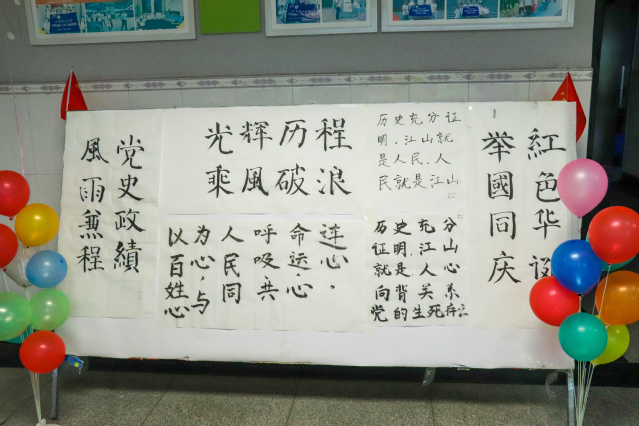 党史政績
風雨兼程
光輝历程
乘風破浪
以百姓心
为心,与
人民同
呼吸共
命运,心
连心.
历史充分证
明,江山就
是人民,人
民就是江山
历史充分
证明,江山
就是人心
向背关系
党的生死存亡
紅色华
举國同庆